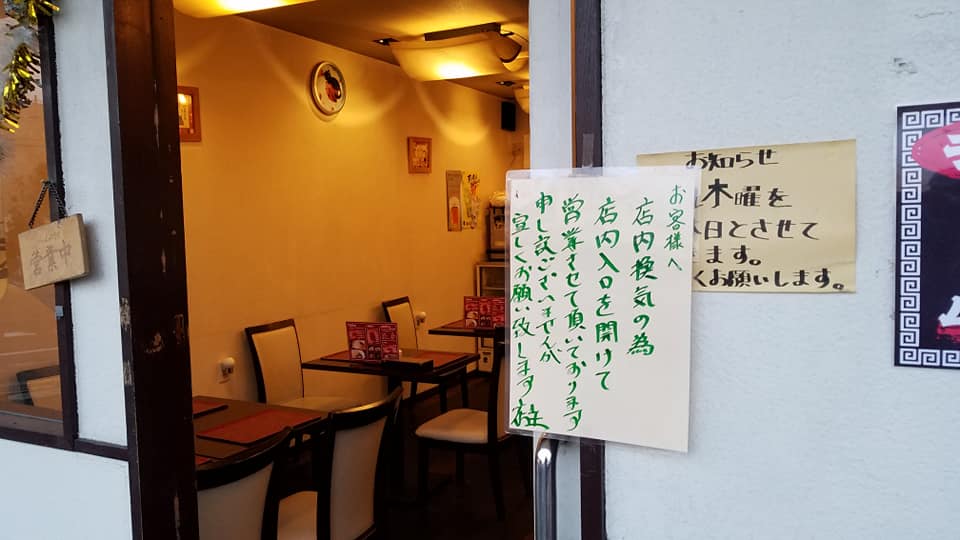 営業中
お客様へ
店内換気の為
店内入口を開けて
営業させて頂いております
申し訳ございませんが
宜しくお願い致します
お知らせ
木曜を
日とさせて
ます。
くお願いします。